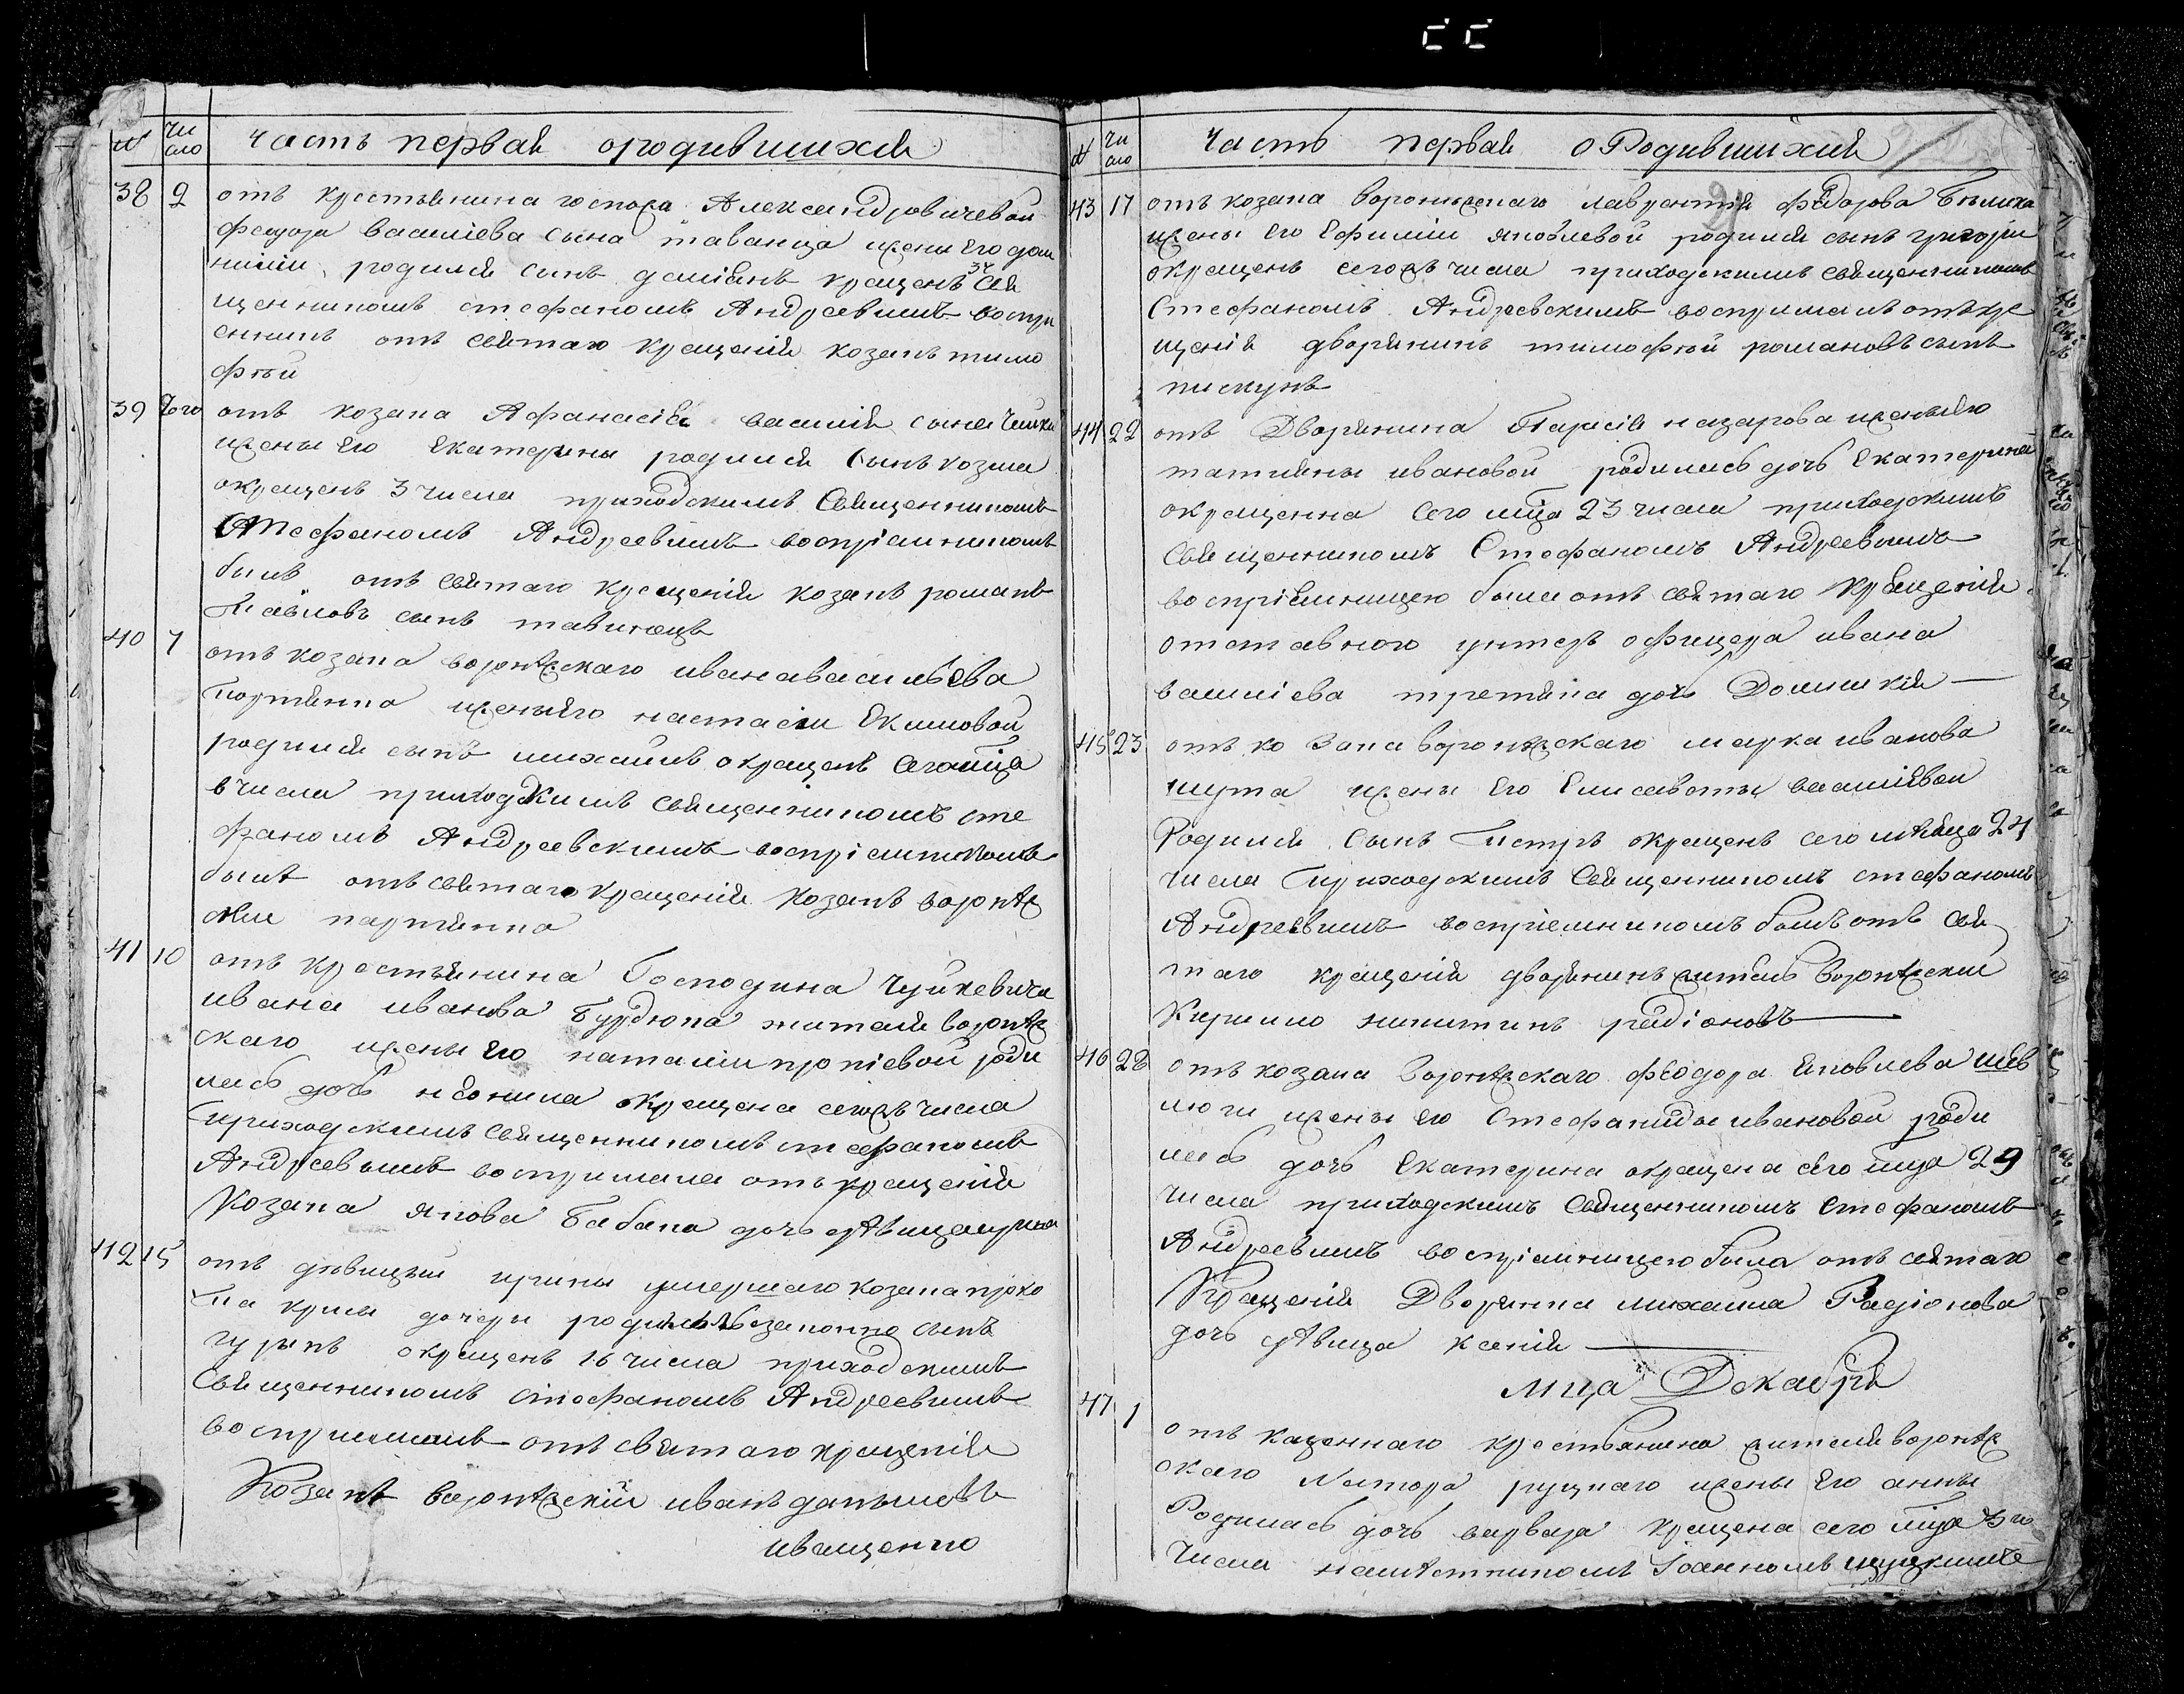 № Число Часть первая ородившихся
38 2 отъ крестьянина госпожа Александровичевой
феодора василіева сына тавanца жены Его дом
ніkіи родился сынъ даміянъ крещенъ 3г свя
щенникомъ стефаномъ Андреевымъ воспри
емникъ отъ святаго крещенія козакъ тимо
фѣй
39 того отъ козака Афанасія василія сына
жены Его Екатерины родился Сынъ козма
окрещенъ 3 числа приходскимъ Священникомъ
Стефаномъ Андреевымъ воспріемникомъ
былъ отъ святаго крещенія козакъ романъ
Павловъ сынъ
40 7 отъ козака воронѣжскаго ивана васильева
портянка жены Его настасіи Екимовой
родился сынъ михаилъ окрещенъ сего мца
8 числа приходскимъ священникомъ сте
фаномъ Андреевскимъ воспріемникомъ
былъ отъ святаго крещенія козакъ воронѣж
скии портянка
41 10 отъ крестьянина Господина Чуйкевича
ивана иванова Бурдюга жителя воронѣж
скаго жены Его наталіи прокіевой роди
лась дочь неонила окрещена сегожъ числа
приходскимъ священникомъ стефаномъ
Андреевымъ восприимала отъ крещенія
Козака якова Бабака дочь дѣвица ирина
42 15 отъ дѣвицы ирины умершаго козака проко
па дочери родился безаконно сынъ
гурінъ окрещенъ 16 числа приходскимъ
Священникомъ стефаномъ Андреевымъ
восприималъ отъ святаго крещенія
Козакъ воронѣжскій иванъ даниловъ
иващенко
№ Число Часть первая о Родившихся
43 17 отъ козака воронѣжскаго лаврентія фёдорова
жены его Ефиміи яковлевой родился сынъ григорій
окрещенъ сегожъ числа приходскимъ священникомъ
Стефаномъ Андреевскимъ восприималъ отъ кре
щенія дворянинъ тимофей романовъ сынъ
пискунъ
44 22 отъ Дворянина Тарасія назарова жены Его
татияны ивановой родилась дочь Екатерина
окрещенна сего мца 23 числа приходскимъ
Священникомъ Стефаномъ Андреевымъ
воспріемницею была отъ святаго крещенія
отставного унтеръ офицера ивана
василіева третяка дочь Домникія
45 23 отъ козака воронѣжскаго марка иванова
шута жены Его Елисаветы василіевой
Родился Сынъ Петръ окрещенъ сего мѣсяца 24
числа приходскимъ Священникомъ стефаномъ
Андреевымъ воспріемникомъ былъ отъ свя
таго крещенія дворянинъ житель воронѣжскій
Кирило никитинъ радіоновъ
46 28 отъ козака воронѣжскаго феодора яковлева шев
люги жены его Стефаниды ивановой роди
лась дочь Екатерина окрещена сего мца 29
числа приходскимъ Священникомъ Стефаномъ
Андреевымъ воспріемницею была отъ святаго
Крещенія Дворянина михаила Радіонова
дочь дѣвица ксенія
мца Декабря
47 1 отъ казеннаго крестьянина жителя воронѣж
скаго жены Его анны
Родилась дочь варвара крещена сего мца 3го
числа намѣстникомъ Іоанномъ